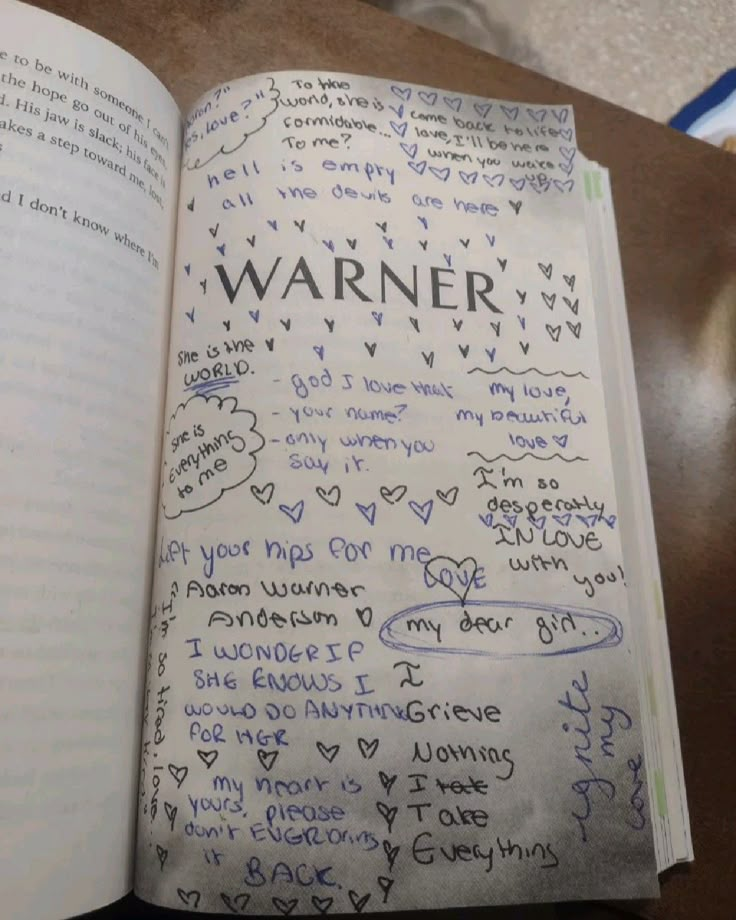 e to be with someone I can't
the hope go out of his eyes.
d. His jaw is slack; his face is
akes a step toward me, lost,
d I don't know where I'm
es, love?"
To the
world, she is
formidable...
To me?
come back to life
love, I'll be here
when you wake
up
hell is empty
all the devils are here
WARNER
She is the
WORLD.
she is
everything
to me
- god I love that
- your name?
- only when you
say it.
my love,
my beautiful
love
I'm so
desperatly
IN LOVE
with
you!
Lift your hips for me
LOVE
Aaron Warner
Anderson
my dear girl..
I WONDER IF
SHE KNOWS I
WOULD DO ANYTHING
FOR HER
my heart is
yours, please
don't EVER bring
it
BACK.
I
Grieve
Nothing
I tak
Take
Everything
ignite
my
love
"I'm so tired, love...